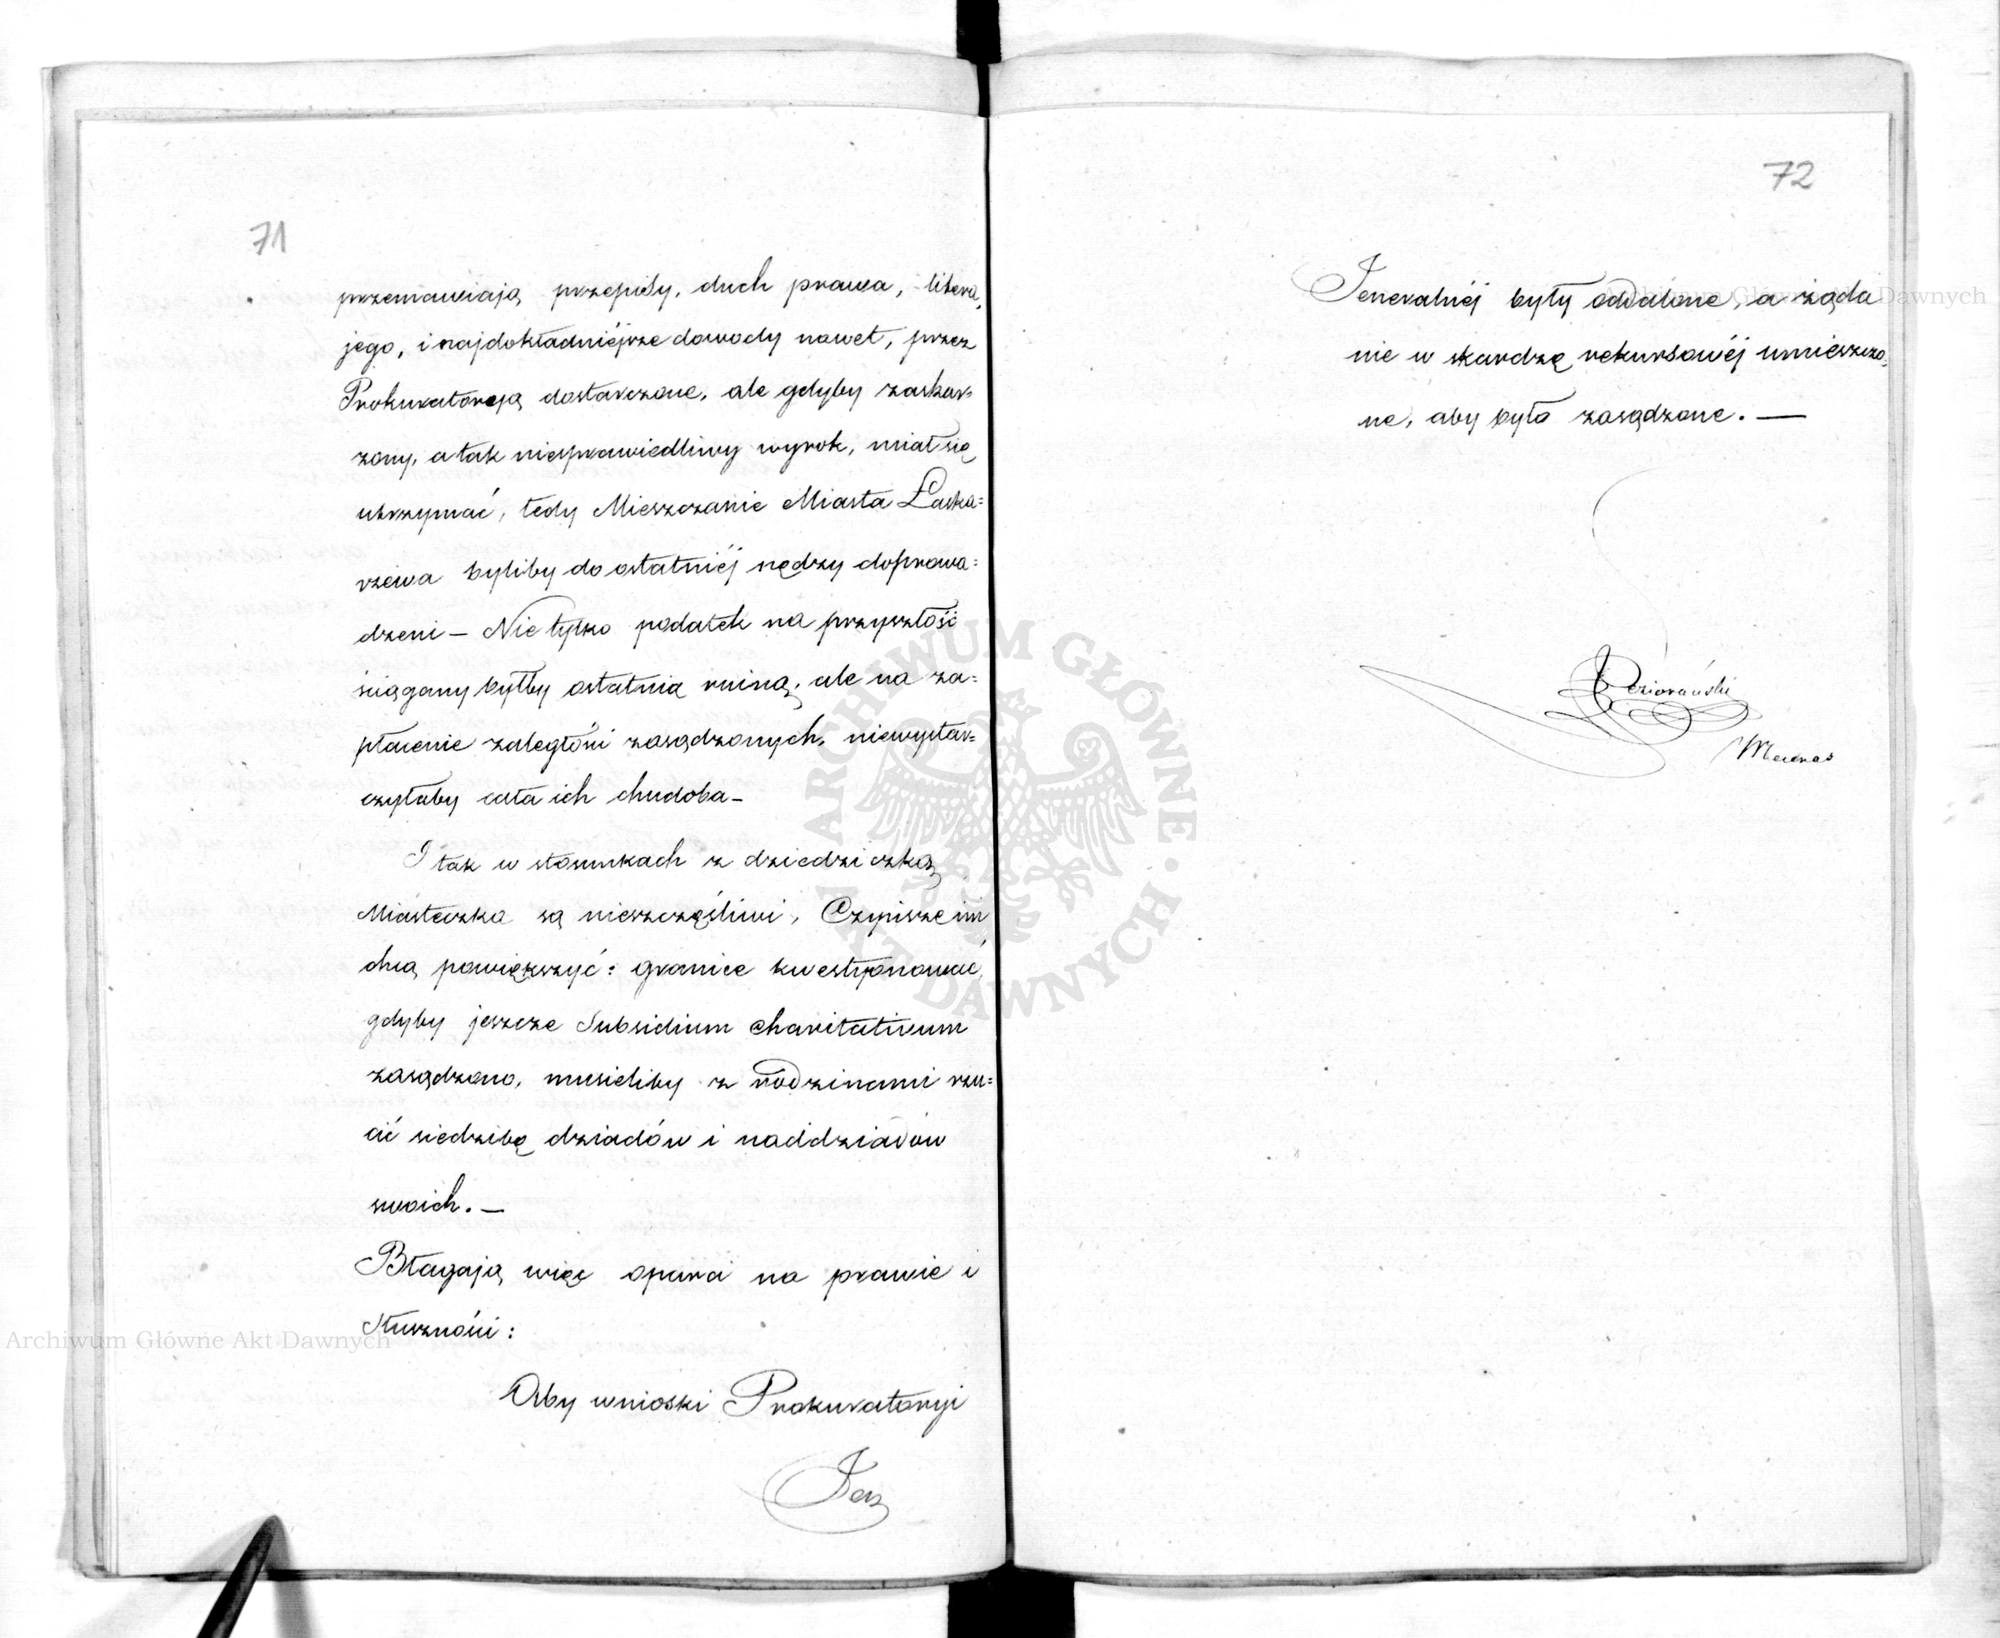 71
przemawiają przepisy, duch prawa, litera,
jego, i najdokładniéjsze dowody nawet, przez
Prokuratoryą dostarczone, ale gdyby zaskar=
zony, a tak niesprawiedliwy wyrok, miał się
utrzymać, tedy Mieszczanie Miasta Łaska=
rzewa byliby do ostatniéj nędzy doprowa=
dzeni — Nie tylko podatek na przyszłość
ściągany byłby ostatnią ruiną, ale na za=
płacenie zaległości zasądzonych, niewystar=
czyłaby cała ich chudoba —
I tak w stosunkach z dziedziczką
Miasteczka są nieszczęśliwi, Czynsze im
chcą powiększyć: granice kwestyonować,
gdyby jeszcze Subsidium charitativum
zasądzono, musieliby z rodzinami rzu=
cić siedzibę dziadów i naddziadów
swoich. —
Błagają więc oparci na prawie i
słuszności:
Aby wnioski Prokuratoryi
Jen
72
Jeneralnéj były oddalone, a żąda
nie w skardze rekursowéj umieszczo=
ne, aby było zasądzone. —
Mecenas
ARCHIWUM GŁÓWNE AKT DAWNYCH
Archiwum Główne Akt Dawnych
Archiwum Główne Akt Dawnych